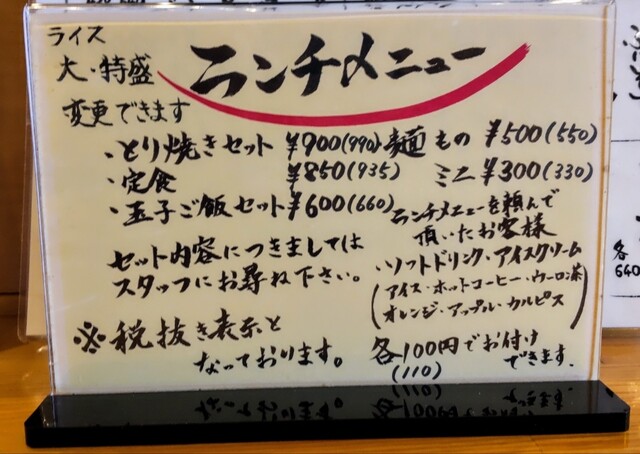 ライス
大・特盛
変更できます
ランチメニュー
・とり焼きセット ¥900(990)
・定食 ¥850(935)
・玉子ご飯セット ¥600(660)
麺もの ¥500(550)
ミニ ¥300(330)
セット内容につきましては
スタッフにお尋ね下さい。
※税抜き表示と
なっております。
ランチメニューを頼んで
頂いたお客様
・ソフトドリンク・アイスクリーム
(アイス・ホットコーヒー・ウーロン茶
オレンジ・アップル・カルピス)
各100円でお付け
(110)
できます.
各
640